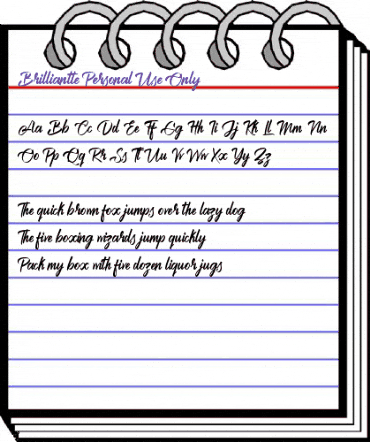 Brilliantte Personal Use Only
Aa Bb Cc Dd Ee Ff Gg Hh Ii Jj Kk Ll Mm Nn
Oo Pp Qq Rr Ss Tt Uu Vv Ww Xx Yy Zz
The quick brown fox jumps over the lazy dog
The five boxing wizards jump quickly
Pack my box with five dozen liquor jugs